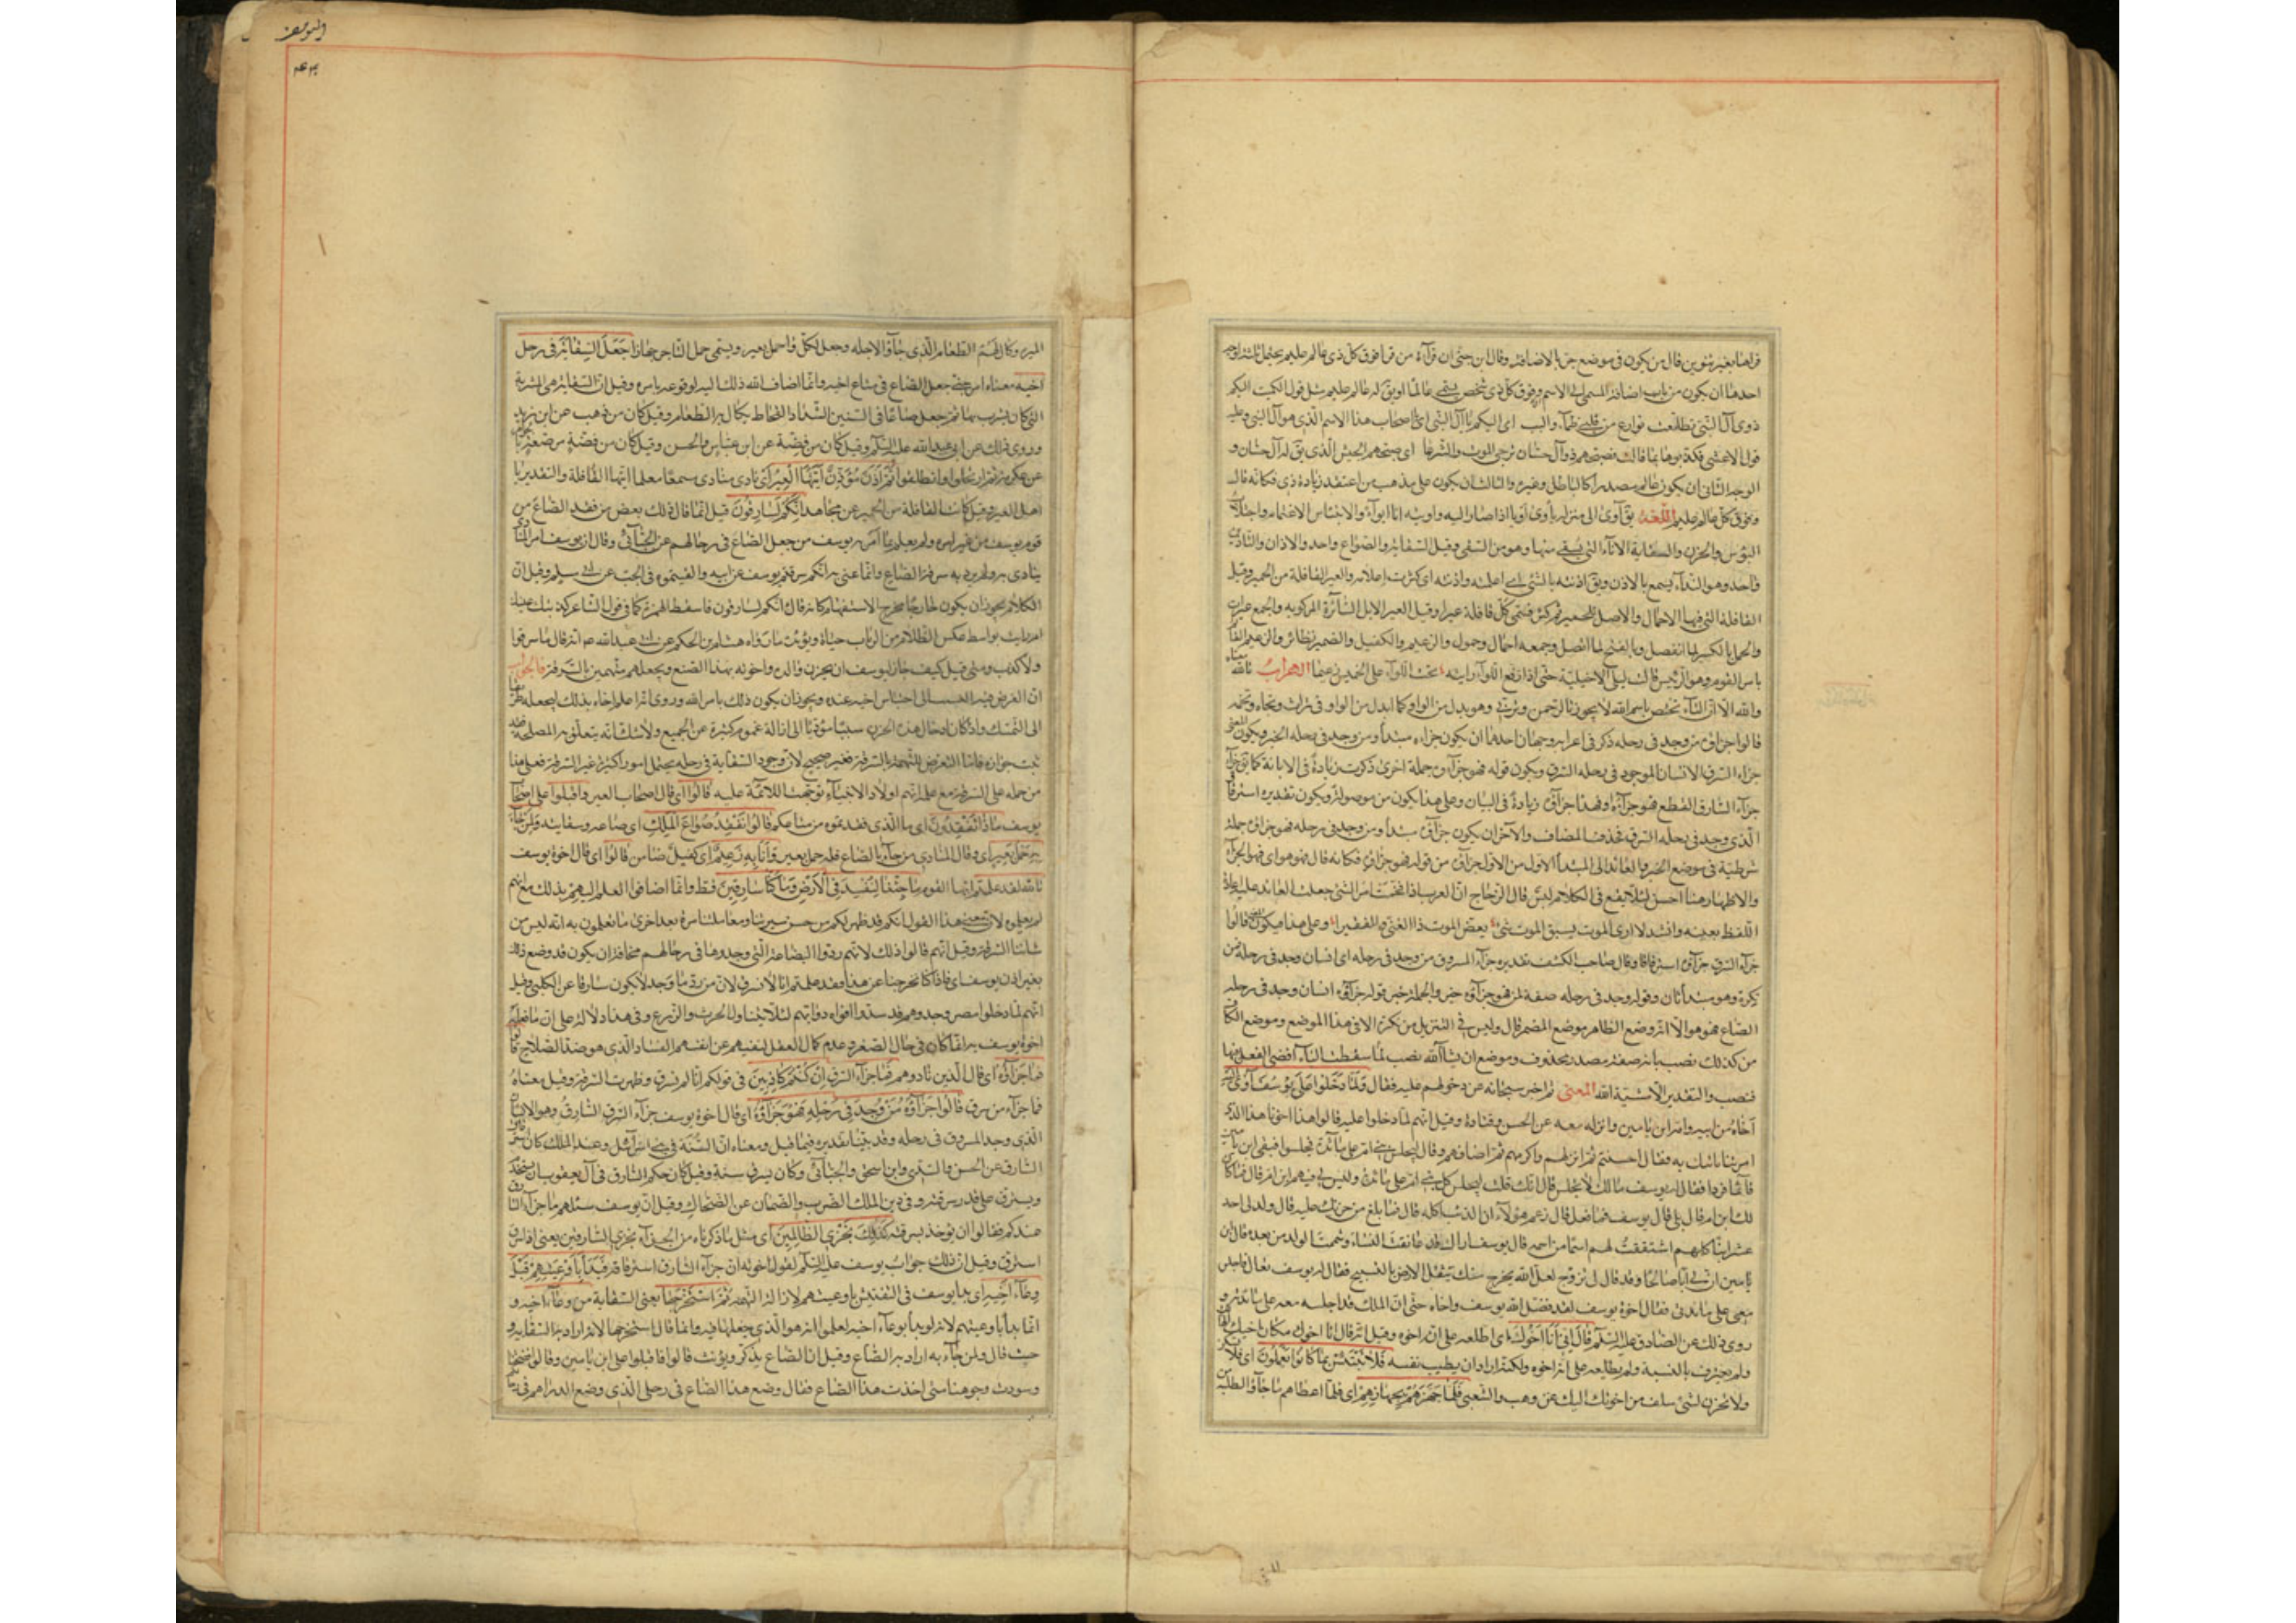 قراها بغير تنوين قال من يكون في موضع جر بالاضافة وقال ابن جنى ان قرآءة من قرا فوق كل ذى عالم عليم يحتمل ثلثة اوجه
احدها ان يكون من باب اضافة المسمى الى الاسم وفوق كل ذى شخص يسمى عالما او يق له عالم عليم مثل قول الكميت اليكم
ذوى آل النبى تطلعت نوازع من قلبى ظمآء والبب اى اليكم يا آل النبى اى يا اصحاب هذا الاسم الذى هو آل النبى وعليه
قول الاعشى فكذبوها بما قالت فصبحهم ذو آل حسّان يزجى الموت والشرعا اى صبحهم الجيش الذى يق له آل حسان و
الوجه الثانى ان يكون عالم مصدرا كالباطل وغيره والثالث ان يكون على مذهب من اعتقد زيادة ذى فكانه قال
وفوق كل عالم عليم اللغة يق آوى الى منزله ياوى اويا اذا صار اليه واويته انا ايوآء والابتئاس الاغتمام واجتلاب
البؤس والحزن والسقاية الانآء التى يسقى منها وهو من السقى وقيل السقاية والصواع واحد والاذان والتاذين
واحد وهو الندآء يسمع بالاذن ويق آذنته بالشئ اى اعلمته واذنته اى كثرت اعلامه والعير القافلة من الحمير وقيل
القافلة التى فيها الاحمال والاصل للحمير ثم كثر فسمى كل قافلة عيرا وقيل العير الابل السّآئرة المركوبة والجمع عيرات
والحمل بالكسر لما انفصل وبالفتح لما اتصل وجمعه احمال وحمول والزعيم والكفيل والضمين نظائر والزعيم القائم
بامر القوم وهو الرئيس قالت ليلى الاخيلية حتى اذا رفع اللوآء رايته تحت اللوآء على الخميس زعيما الاعراب تالله معناه
والله الا ان التآء تختص باسم الله لا يجوز تالرحمن وتربى وهو بدل من الواو كما ابدل من الواو فى تراث وتجاه وتخمة
قالوا جزاؤه من وجد فى رحله ذكر فى اعرابه وجهان احدهما ان يكون جزاءه مبتدأ ومن وجد فى رحله الخبر ويكون المعنى
جزاء السرق الانسان الموجود فى رحله السرق ويكون قوله فهو جزاؤه جملة اخرى ذكرت زيادة فى الابانة كما يق جزآء
جزآء السارق القطع فهو جزآؤه فهذا جزآؤه زيادة فى البيان وعلى هذا يكون من موصولة ويكون تقديره استرقاق
الذى وجد فى رحله السرق فحذف المضاف والآخر ان يكون جزآؤه مبتدأ ومن وجد فى رحله فهو جزاؤه جملة
شرطية فى موضع الخبر والعائد الى المبتدأ الاول من الاول جزآؤه من قوله فهو جزاؤه فكانه قال فهو هو اى فهو الجزآء
والاظهار هنا احسن لئلا يقع فى الكلام لبس قال الزجاج ان العرب اذا فخمت امر الشئ جعلت العائد عليه اعادة
اللفظ بعينه وانشد لا ارى الموت يسبق الموت شئ بغض الموت ذا الغنى والفقيرا وعلى هذا فيكون قالوا
جزآء السرق جزآؤه استرقاقا وقال صاحب الكشف تقديره جزآء المسروق من وجد فى رحله اى انسان وجد فى رحله فمن
نكرة وهو مبتدأ ثان وقوله وجد فى رحله صفة لمن فهو جزآؤه خبر والجملة خبر قوله جزآؤه انسان وجد فى رحله
الصاع فهو هو الا انه وضع الظاهر موضع المضمر قال وليس فى التنزيل من نكرة الا فى هذا الموضع وموضع الكاف
من كذلك نصب بانه صفة مصدر محذوف وموضع ان يشآ الله نصب لما سقطت البآء افضى الفعل اليها
فنصب والتقدير الا بمشية الله المعنى ثم اخبر سبحانه عن دخولهم عليه فقال وَلَمَّا دَخَلُوا عَلٰى يُوسُفَ آوٰى اليه
آخاه من ابيه وامه ابن يامين وانزله معه عن الحسن وقتادة وقيل انهم لما دخلوا عليه قالوا هذا اخونا هذا الذى
امرتنا ناتيك به فقال احسنتم ثم انزلهم واكرمهم ثم اضافهم وقال ليجلس بنى ام على مآئدة فجلسوا فبقى ابن يامين
قآئما فردا فقال له يوسف مالك لا تجلس قال انك قلت ليجلس كل بنى ام على مائدة وليس لى فيهم ابن ام قال فما كان
لك ابن ام قال بلى قال يوسف فما فعل قال زعم هؤلآء ان الذئب اكله قال فما بلغ من حزنك عليه قال ولد لى احد
عشر ابنا كلهم اشتققت لهم اسما من اسمه قال يوسف اراك قد عانقت النساء وشممت الولد من بعده قال ابن
يامين ان لى ابا صالحا وقد قال لى تزوج لعل الله يخرج منك ذرية تثقل الارض بالتسبيح فقال له يوسف تعال فاجلس
معى على مائدتى فقال اخوة يوسف لقد فضل الله يوسف واخاه حتى ان الملك قد اجلسه معه على مائدته و
روى ذلك عن الصادق عليه السلم قَالَ اِنّى اَنَا اَخُوكَ اى اطلعه على انه اخوه وقيل انه قال انا اخوك مكان اخيك الهالك
ولم يعترف بالنسبة ولم يطالعه على انه اخوه ولكنه اراد ان يطيب نفسه فَلَا تَبْتَئِسْ بِمَا كَانُوا يَعْمَلُونَ اى فلا تسكن
ولا تحزن لشئ سلف من اخوتك اليك عن وهب والشعبى فَلَمّا جَهَّزَهُمْ بِجَهَازِهِمْ اى فلما اعطاهم ما جآؤا لطلبه من
اليوسف
الميرة وكال لهم الطعام الذى جآؤا لاجله وجعل لكل واحمل بعير ويسمى حمل التاجر جهازا جَعَلَ السِّقَايَةَ فى رحل
اخيه معناه امر حتى جعل الصاع فى متاع اخيه وانما اضاف الله ذلك اليه لوقوعه بامره وقيل ان السقاية هى المشربة
التى كان يشرب بها ثم جعل صاعا فى السنين الشداد القحاط يكال به الطعام وقيل كان من ذهب عن ابن زيد
وروى ذلك عن ابى عبد الله عليه السلم وقيل كان من فضة عن ابن عباس والحسن وقيل كان من فضة مرصعة بالجواهر
عن عكرمة ثم ارتحلوا وانطلقوا ثُمَّ اَذَّنَ مُؤَذِّنٌ اَيَّتُهَا الْعِيْرُ اى نادى مناد مسمعا معلما ايتها القافلة والتقدير يا
اهل العير وقيل كانت القافلة من الحمير عن مجاهد اِنَّكُمْ لَسَارِقُونَ قيل انما قال ذلك بعض من فقد الصّاع من
قوم يوسف من غير امره ولم يعلم بما امر به يوسف من جعل الصاع فى رحالهم عن الجبآئى وقال ان يوسف امر المنادى
ينادى به ولم يرد به سرقة الصاع وانما عنى به انكم سرقتم يوسف عن ابيه والقيتموه فى الجب عن ابى مسلم وقيل ان
الكلام يجوز ان يكون خارجا مخرج الاستفهام كانه قال ائنكم لسارقون فاسقط الهمزة كما فى قول الشاعر كذبتك عينك
ام رايت بواسط غلس الظلام من الرباب خيالا ويؤيده ما رواه هشام بن الحكم عن ابى عبد الله ع انه قال ما سرقوا
ولا كذب ومتى قيل كيف جاز ليوسف ان يحزن والده واخوته بهذا الصنع ويجعلهم متهمين بالسرقة فالجواب
ان الغرض فيه التسبب الى احتباس اخيه عنده ويجوز ان يكون ذلك بامر الله وروى انه اعلم اخاه بذلك ليجعله طريقا
الى التمسك واذ كان ادخال هذا الحزن سببا مؤديا الى ازالة غموم كثيرة عن الجميع ولا شك انه يتعلق به المصلحة فقد
ثبت جوازه فاما التعرض للتهمة بالسرقة فغير صحيح لان وجود السقاية فى رحله يحتمل امورا كثيرة غير السرقة فعلى هذا
من حمله على السرقة مع علمه انهم اولاد الانبيآء توجهت اللائمة عليه قَالُوا اى قال اصحاب العير واقبلوا على اصحاب
يوسف مَاذَا تَفْقِدُونَ اى ما الذى فقدتموه من متاعكم قَالُوا نَفْقِدُ صُوَاعَ الْمَلِكِ اى صاعه وسقايته وَلِمَنْ جَآءَ
بِهِ حِمْلُ بَعِيرٍ اى وقال المنادى من جآء بالصاع فله حمل بعير وَاَنَا بِهِ زَعِيمٌ اى كفيل ضامن قَالُوا اى قال اخوة يوسف
تالله لقد علمتم ايها القوم مَا جِئْنَا لِنُفْسِدَ فِى الْاَرْضِ وَمَا كُنَّا سَارِقِينَ قط وانما اضافوا العلم اليهم بذلك مع انهم
لم يعلموه لان معنى هذا القول انكم قد ظهر لكم من حسن سيرتنا ومعاملتنا مرة بعد اخرى ما تعلمون به انه ليس من
شاننا السرقة وقيل انهم قالوا ذلك لانهم ردوا البضاعة التى وجدوها فى رحالهم مخافة ان يكون قد وضع ذلك
بغير اذن يوسف اى فاذا كنا تحرجنا عن هذا فقد علمتم انا لا نسرق لان من رد ما وجد لا يكون سارقا عن الكلبى وقيل
انهم لما دخلوا مصر وجدوهم قد سدوا افواه دوابهم لئلا يتناول الحرث والزرع وفى هذا دلالة على ان ما فعله
اخوة يوسف به انما كان فى حال الصغر وعدم كمال العقل لنفيهم عن انفسهم الفساد الذى هو ضد الصلاح قالوا
فما جَزَآؤُهُ اى قال الذين نادوهم فما جزآء السرق اِنْ كُنْتُمْ كَاذِبِينَ فى قولكم انا لم نسرق وظهرت السرقة وقيل معناه
فما جزآء من سرق قَالُوا جَزَآؤُهُ مَنْ وُجِدَ فِى رَحْلِهِ فَهُوَ جَزَآؤُهُ اى قال اخوة يوسف جزآء السرق السارق وهو الانسان
الذى وجد المسروق فى رحله وقد بينا تقديره فيما قيل ومعناه ان السُّنة فى بنى اسرآئيل وعند الملك كان استرقاق
السارق عن الحسن والسدى وابن اسحق والجبآئى وكان يسرق سنة وقيل كان حكم السارق فى آل يعقوب ان يستخدم
ويسترق على قدر سرقته وفى دين الملك الضرب والضمان عن الضحاك وقيل ان يوسف سئلهم ما جزآء السارق
عندكم فقالوا ان يؤخذ بسرقته كَذٰلِكَ نَجْزِى الظَّالِمِينَ اى مثل ما ذكرناه من الجزآء نجزى السارقين يعنى اذا سرق
استرق وقيل ان ذلك جواب يوسف عليه السلم لقول اخوته ان جزآء السارق استرقاقه فَبَدَأَ بِاَوْعِيَتِهِمْ قَبْلَ
وِعَآءِ اَخِيهِ اى بدا يوسف فى التفتيش باوعيتهم لازالة التهمة ثُمَّ اسْتَخْرَجَهَا يعنى السقاية من وعآء اخيه و
انما بدأ باوعيتهم لانه لو بدأ بوعآء اخيه لعلموا انه هو الذى جعلها فيه وانما قال استخرجها لانه اراد به السقاية و
حيث قال ولمن جآء به اراد به الصاع وقيل ان الصاع يذكر ويؤنث قالوا فاقبلوا على ابن يامين وقالوا فضحتنا
وسودت وجوهنا متى اخذت هذا الصاع فقال وضع هذا الصاع فى رحلى الذى وضع الدراهم فى رحالكم